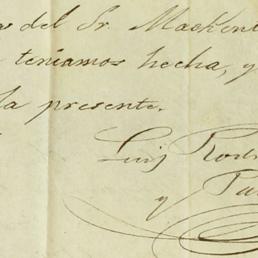 del Sr. Macken
teniamos hecha, y
la presente.
Luis Rodr
y